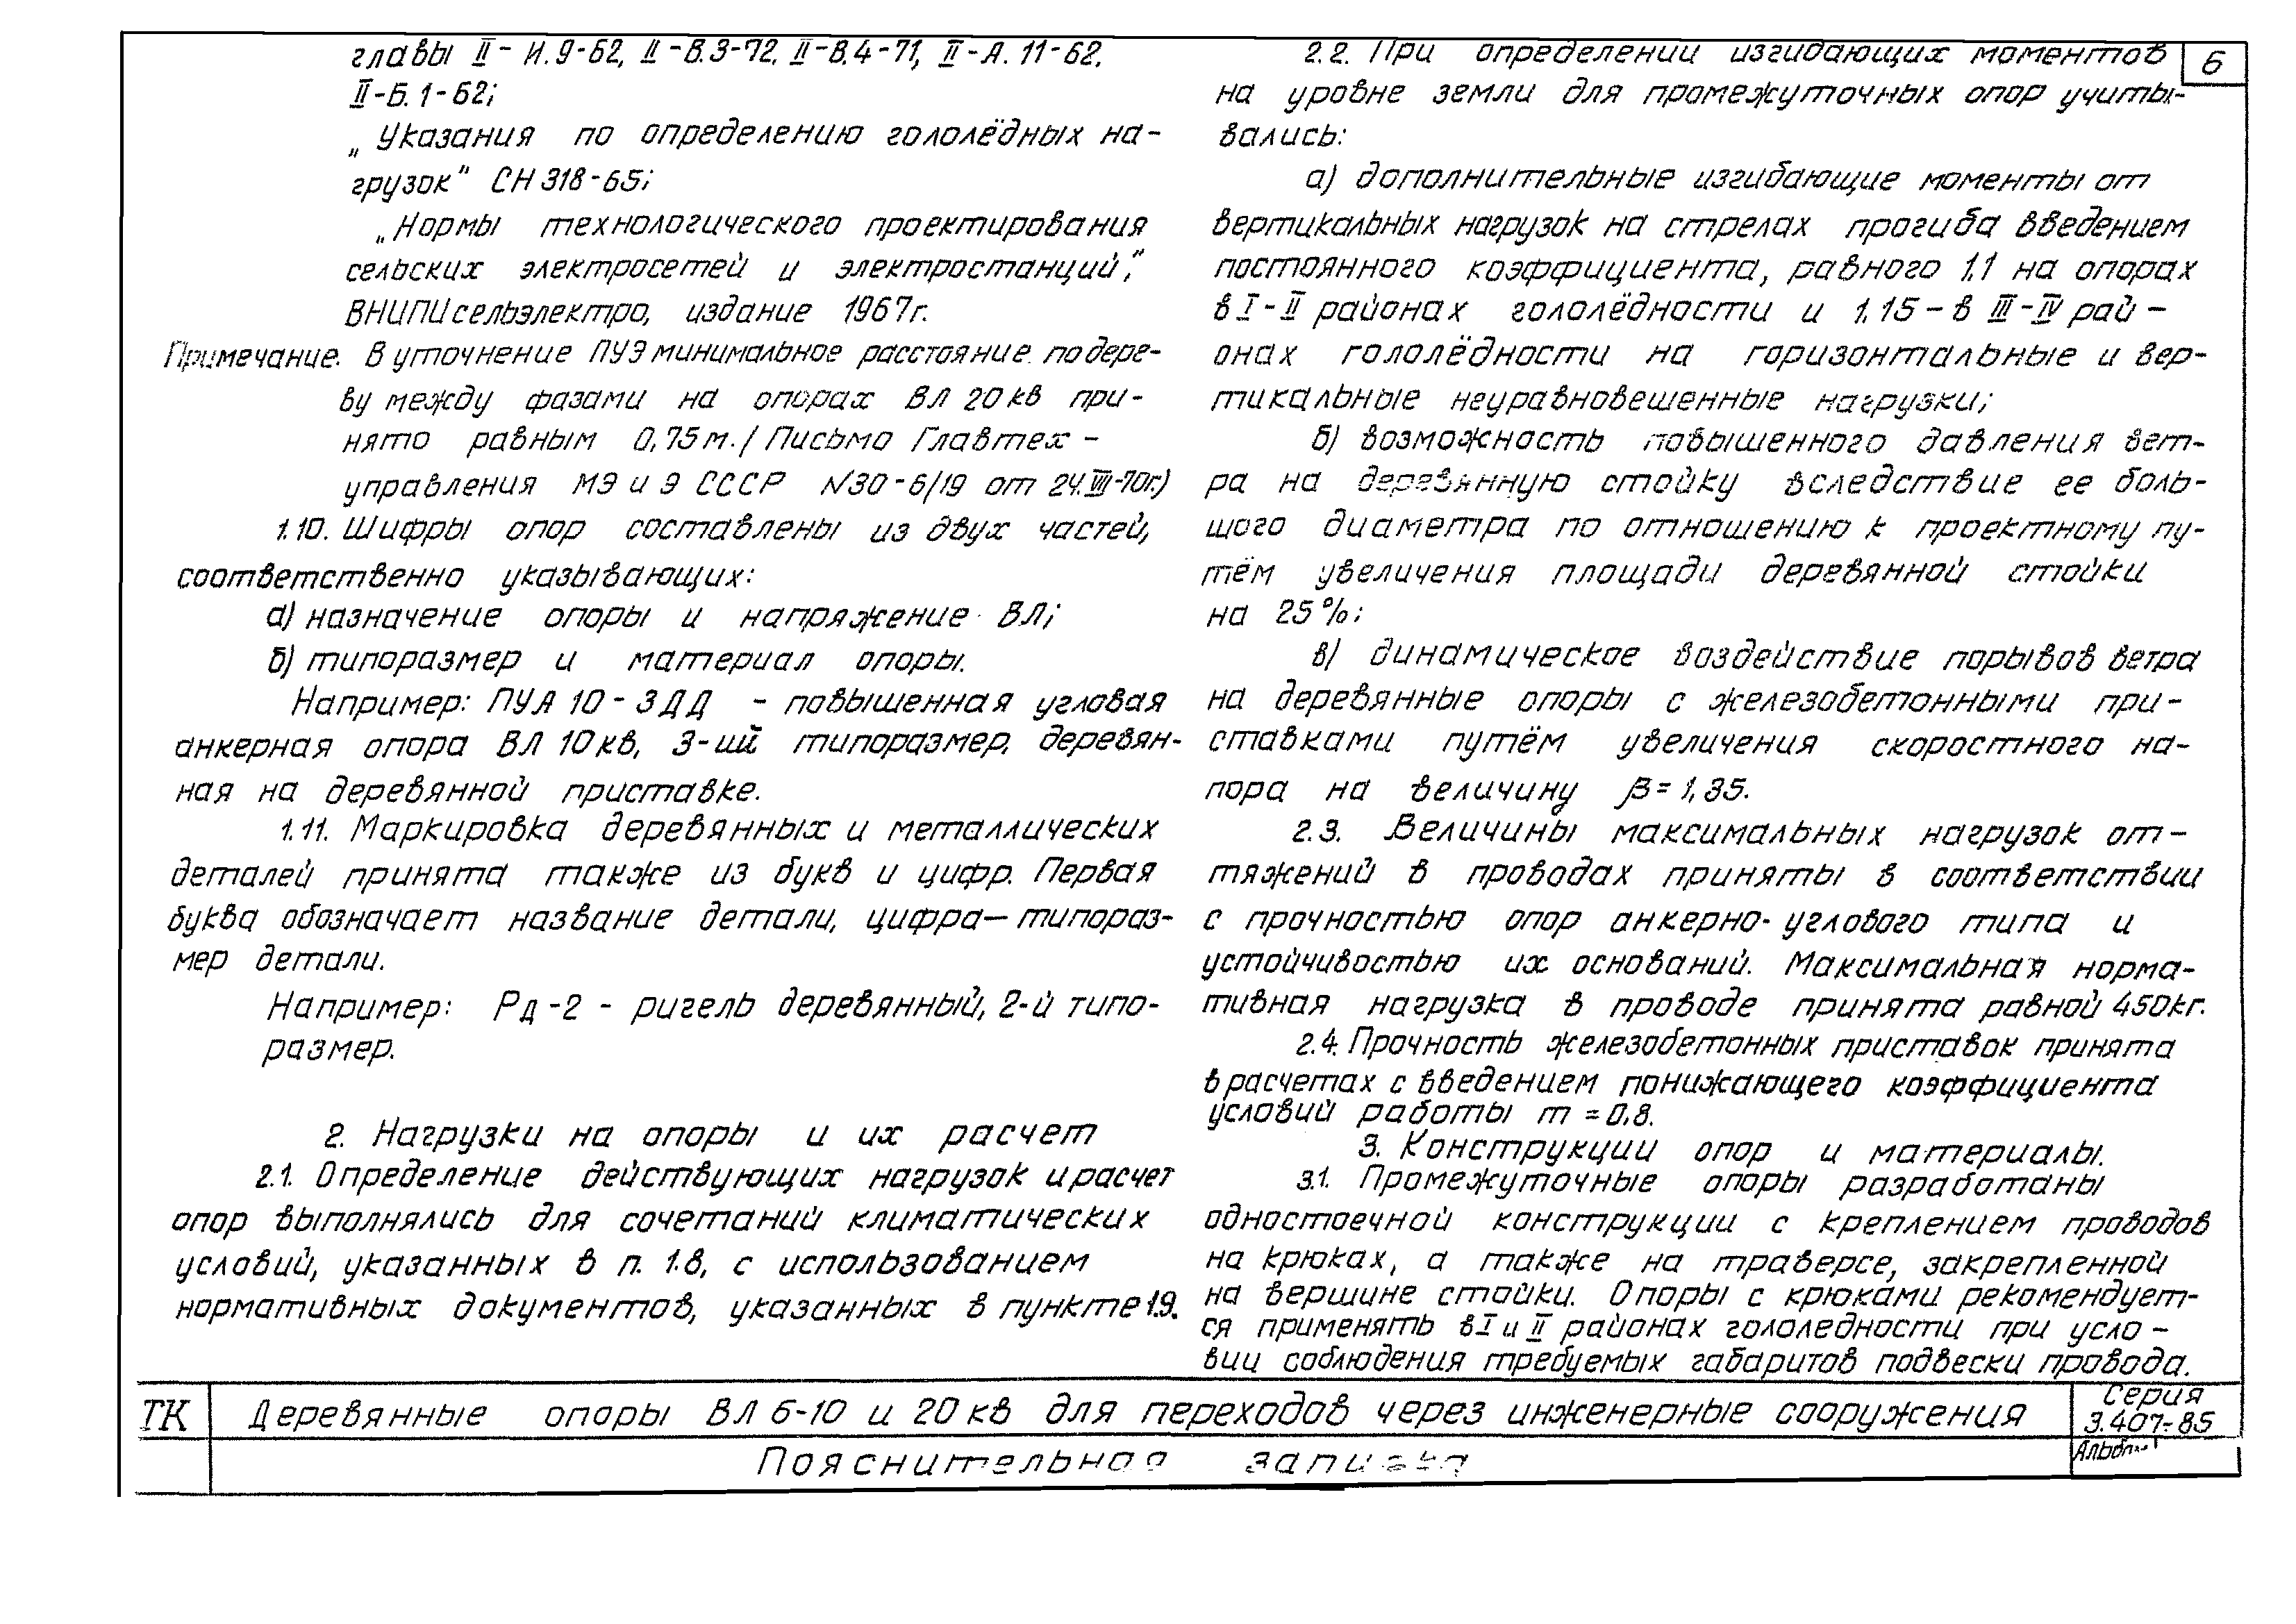 главы II- И.9-62, II-В.3-72. II-В.4-71, II-А.11-62.
II-Б.1-62;
„Указания по определению гололёдных на-
грузок" СН 318-65;
„Нормы технологического проектирования
сельских электросетей и электростанций,"
ВНИПИсельэлектро, издание 1967г.
Примечание. В уточнение ПУЭ минимальное расстояние по дере-
ву между фазами на опорах ВЛ 20кв при-
нято равным 0,75м./Письмо Главтех-
управления МЭ и Э СССР N30-6/19 от 24.VIII-70г.)
1.10. Шифры опор составлены из двух частей,
соответственно указывающих:
а) назначение опоры и напряжение ВЛ;
б) типоразмер и материал опоры.
Например: ПУА 10-3ДД - повышенная угловая
анкерная опора ВЛ 10кв, 3-ий типоразмер, деревян-
ная на деревянной приставке.
1.11. Маркировка деревянных и металлических
деталей принята также из букв и цифр. Первая
буква обозначает название детали, цифра—типораз-
мер детали.
Например: Рд-2 - ригель деревянный, 2-й типо-
размер.
2. Нагрузки на опоры и их расчет
2.1. Определение действующих нагрузок и расчет
опор выполнялись для сочетаний климатических
условий, указанных в п. 1.8, с использованием
нормативных документов, указанных в пункте 1.9.
6
2.2. При определении изгибающих моментов
на уровне земли для промежуточных опор учиты-
вались:
а) дополнительные изгибающие моменты от
вертикальных нагрузок на стрелах прогиба введением
постоянного коэффициента, равного 1.1 на опорах
в I-II районах гололёдности и 1.15-в III-IV рай-
онах гололёдности на горизонтальные и вер-
тикальные неуравновешенные нагрузки;
б) возможность повышенного давления вет-
ра на деревянную стойку вследствие ее боль-
шого диаметра по отношению к проектному пу-
тём увеличения площади деревянной стойки
на 25%;
в) динамическое воздействие порывов ветра
на деревянные опоры с железобетонными при-
ставками путём увеличения скоростного на-
пора на величину β=1,35.
2.3. Величины максимальных нагрузок от-
тяжений в проводах приняты в соответствии
с прочностью опор анкерно-углового типа и
устойчивостью их оснований. Максимальная норма-
тивная нагрузка в проводе принята равной 450кг.
2.4. Прочность железобетонных приставок принята
в расчетах с введением понижающего коэффициента
условий работы m=0,8.
3. Конструкции опор и материалы.
3.1. Промежуточные опоры разработаны
одностоечной конструкции с креплением проводов
на крюках, а также на траверсе, закрепленной
на вершине стойки. Опоры с крюками рекомендует-
ся применять в I и II районах гололедности при усло-
вии соблюдения требуемых габаритов подвески провода.
ТК Деревянные опоры ВЛ 6-10 и 20кв для переходов через инженерные сооружения
Серия
3.407-85
Пояснительная записка
Альбом I